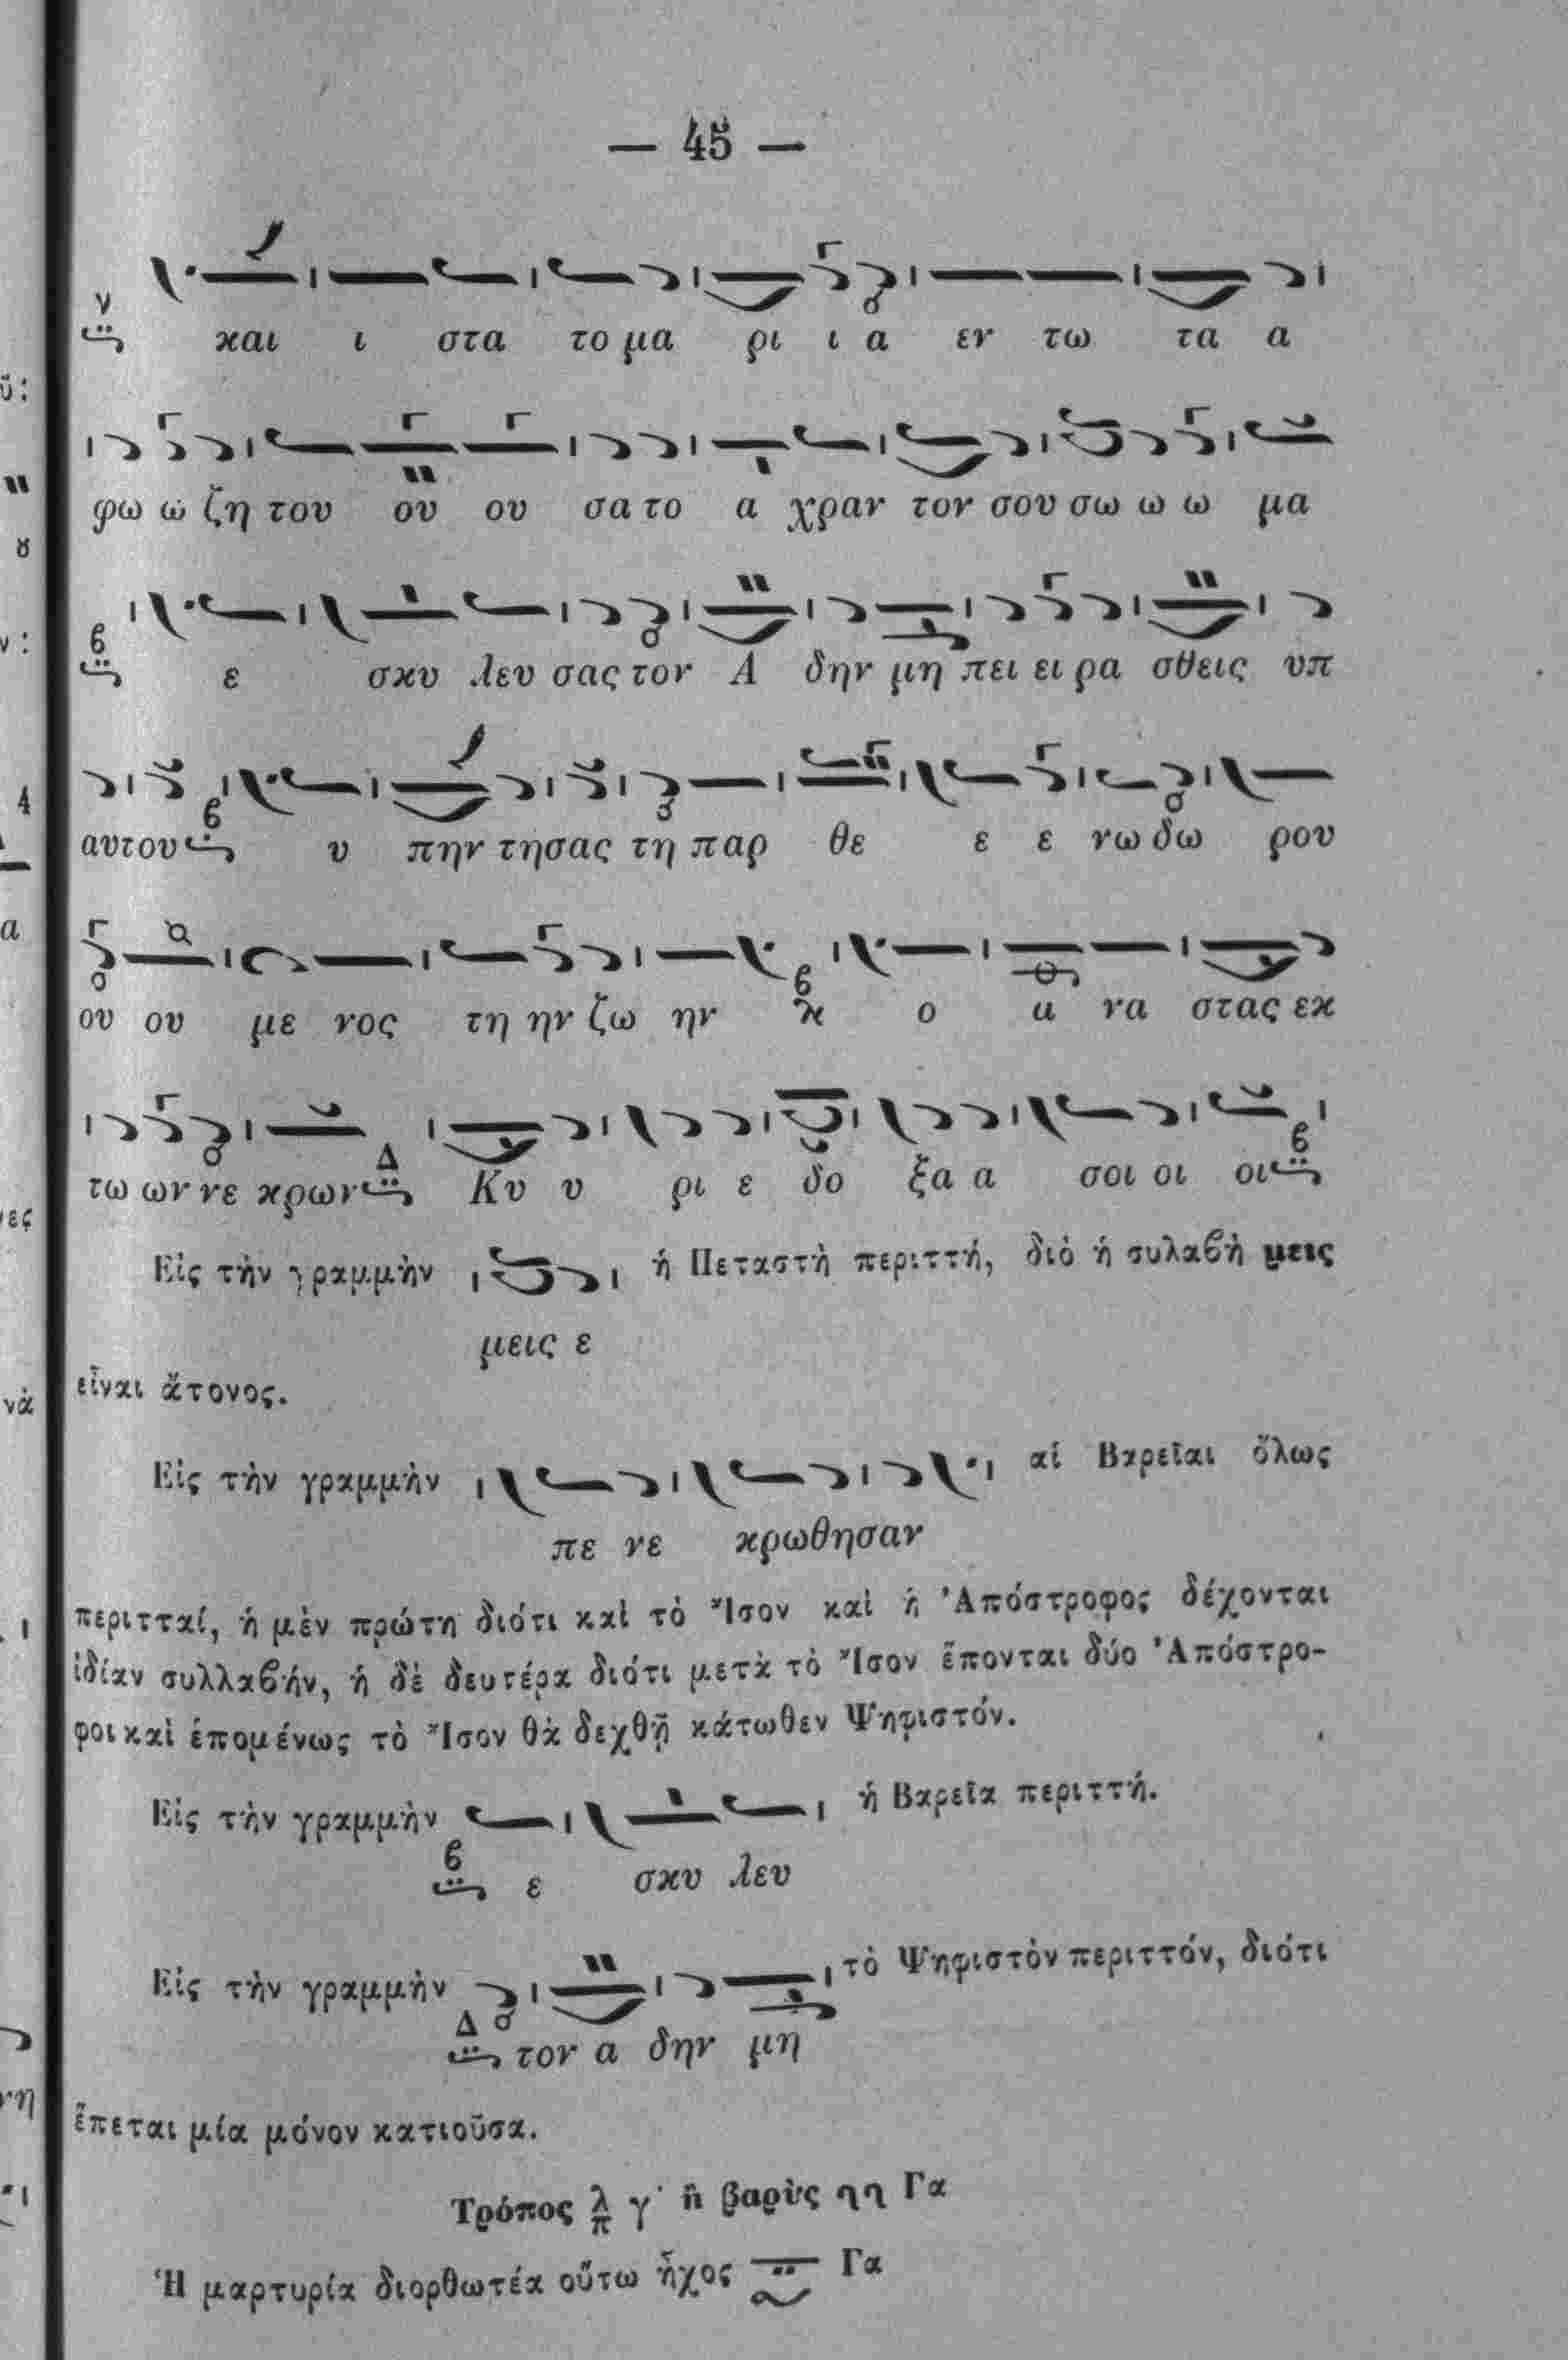 — 45 —
ν
και ι στα το μα ρι ι α εν τω τα α
φω ω ζη του ου ου σα το α χραν τον σου σω ω ω μα
ϐ
ε σκυ λευ σας τον Α δην μη πει ει ρα σθεις υπ
αυτου ϐ υ πην τησας τη παρ θε ε ε νω δω ρου
ου ου με νος τη ην ζω ην ϐ ο α να στας εκ
τω ων νε κρων Δ Κυ υ ρι ε δο ξα α σοι οι οι ϐ
Εἰς τὴν γραμμὴν ἡ Πεταστὴ περιττή, διὸ ἡ συλαϐὴ μεις
μεις ε
εἶναι ἄτονος.
Εἰς τὴν γραμμὴν αἱ Βαρεῖαι ὅλως
πε νε κρωθησαν
περιτταί, ἡ μὲν πρώτη διότι καὶ τὸ Ἴσον καὶ ἡ Ἀπόστροφος δέχονται
ἰδίαν συλλαϐήν, ἡ δὲ δευτέρα διότι μετὰ τὸ Ἴσον ἕπονται δύο Ἀπόστρο-
φοι καὶ ἑπομένως τὸ Ἴσον θὰ δεχθῇ κάτωθεν Ψηφιστόν.
Εἰς τὴν γραμμὴν ἡ Βαρεῖα περιττή.
ϐ ε σκυ λευ
Εἰς τὴν γραμμὴν τὸ Ψηφιστὸν περιττόν, διότι
Δ τον α δην μη
ἕπεται μία μόνον κατιοῦσα.
Τρόπος λ π γ΄ ἢ βαρὺς ηη Γα
Ἡ μαρτυρία διορθωτέα οὕτω ἦχος Γα